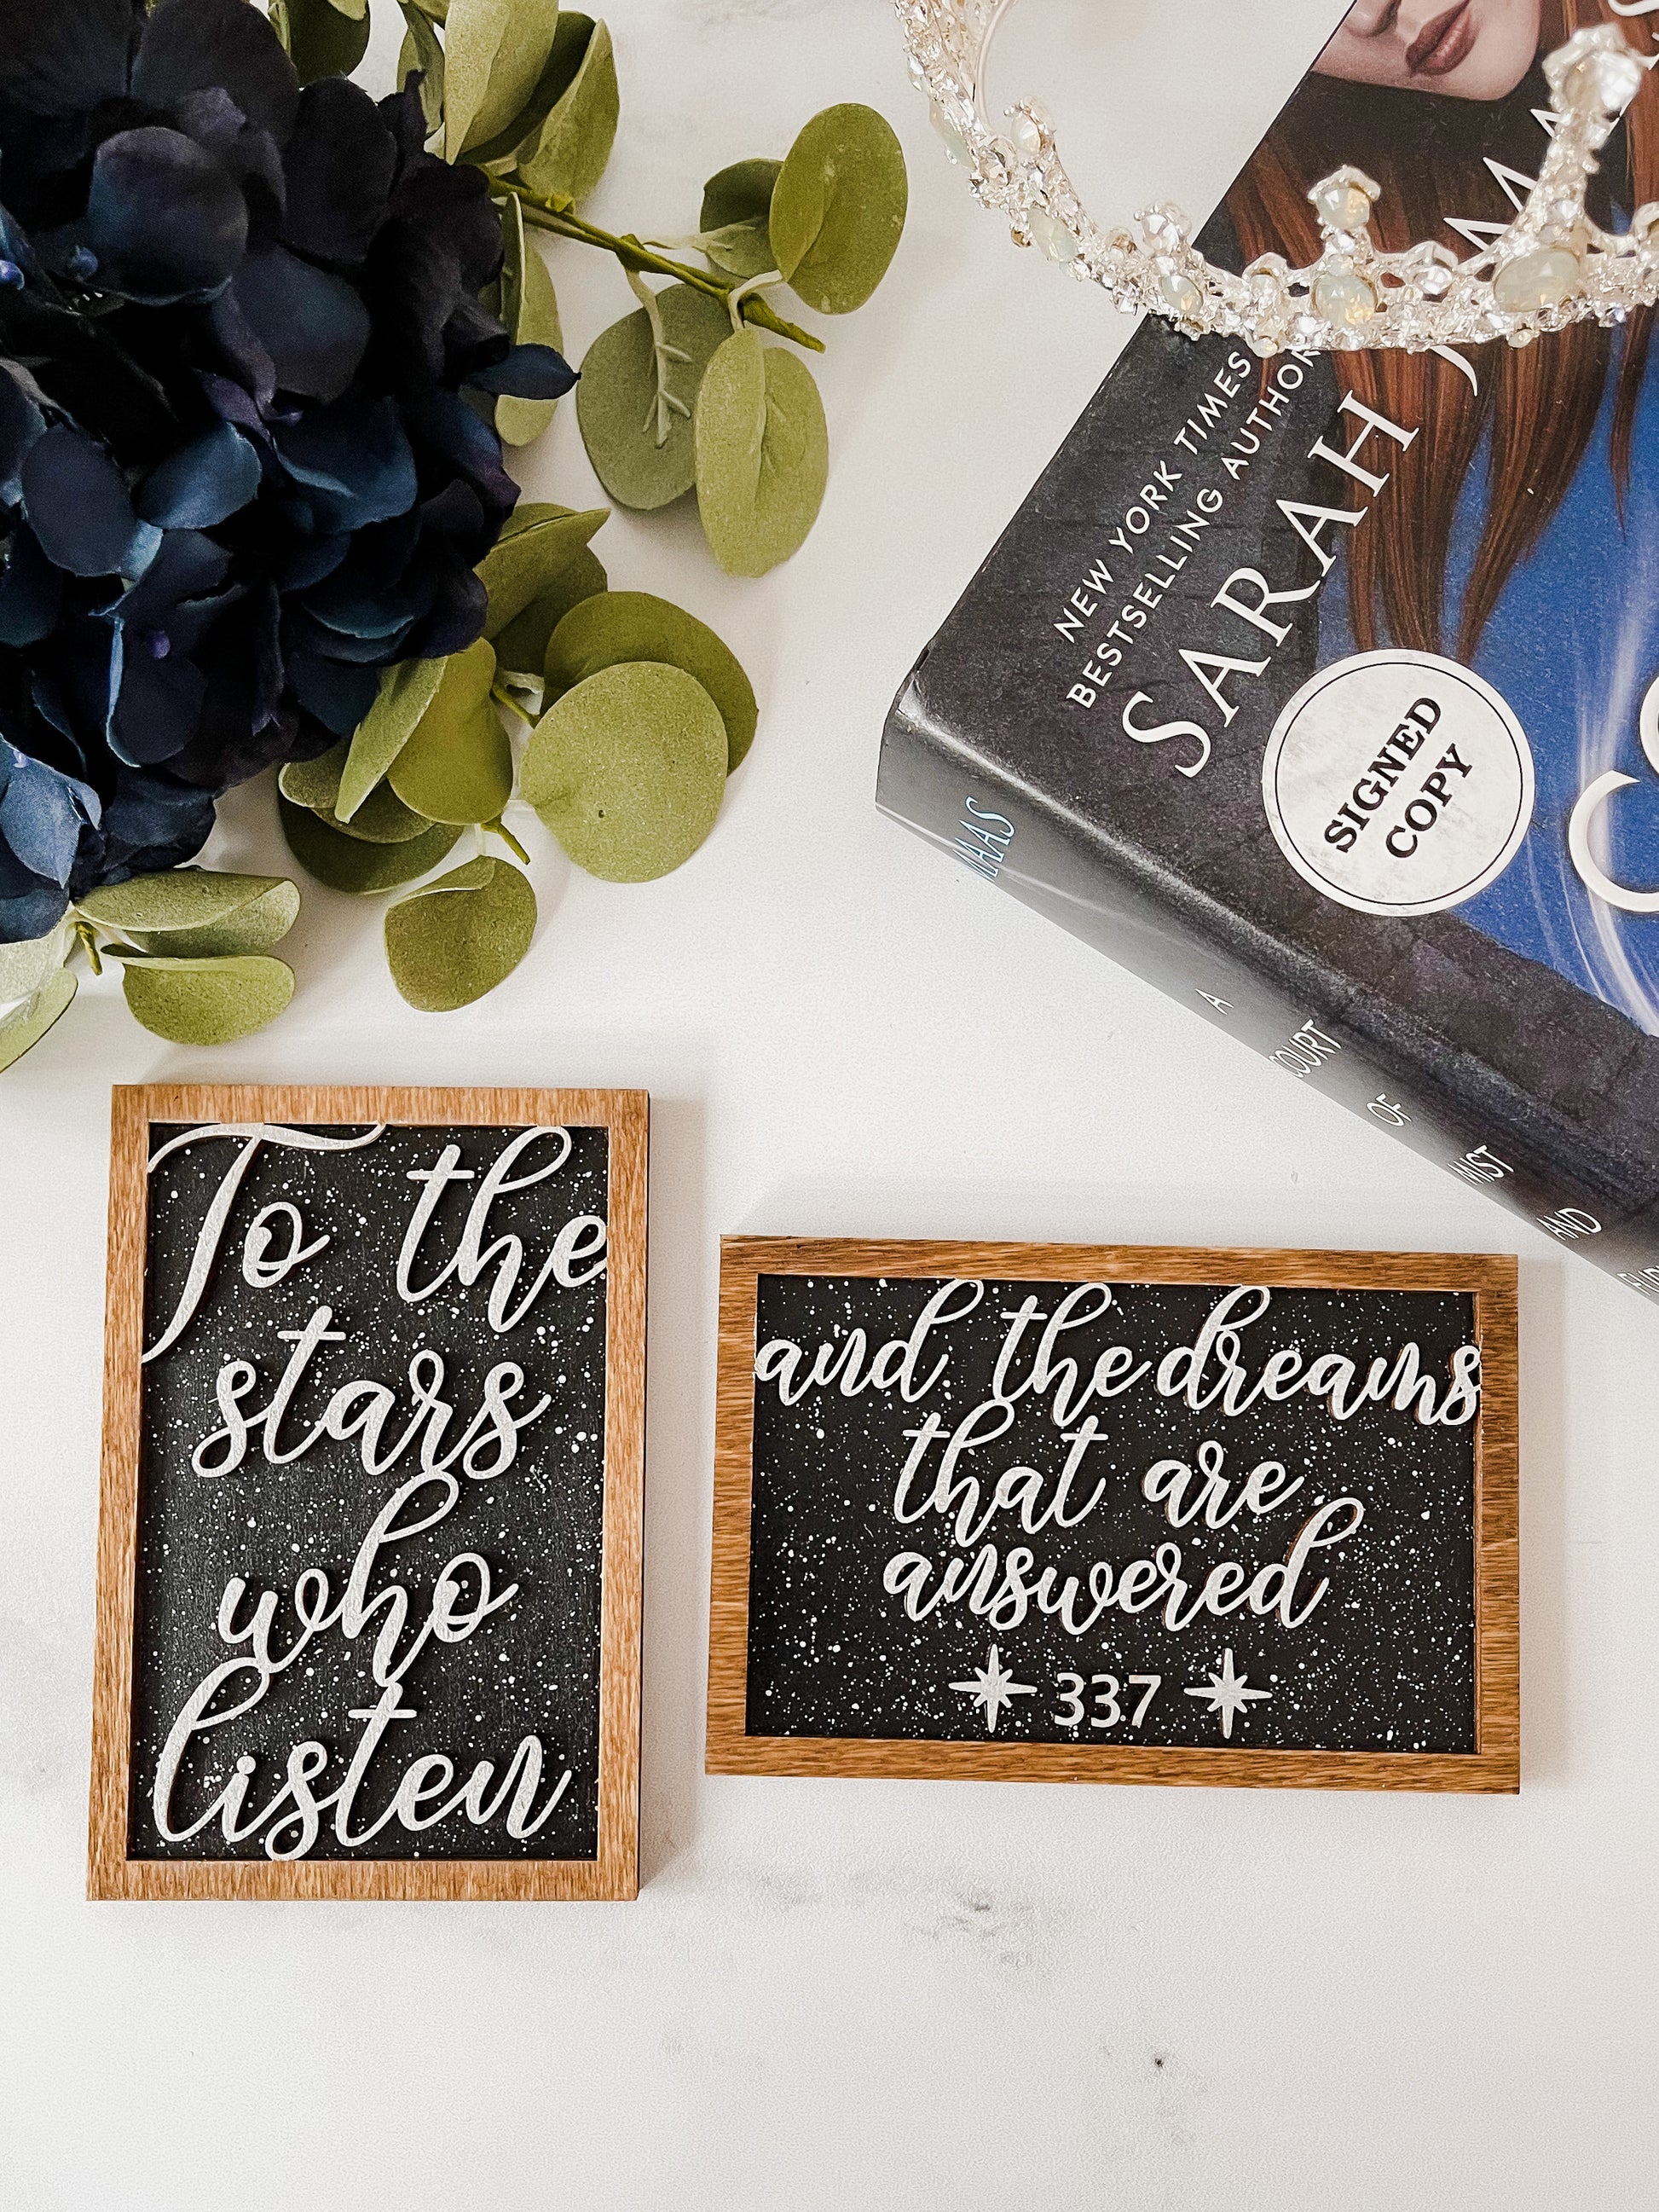 NEW YORK TIMES
BESTSELLING AUTHOR
SARAH J. MAAS
SIGNED
COPY
MAAS
A COURT OF MIST AND
To the
stars
who
listen
and the dreams
that are
answered
337